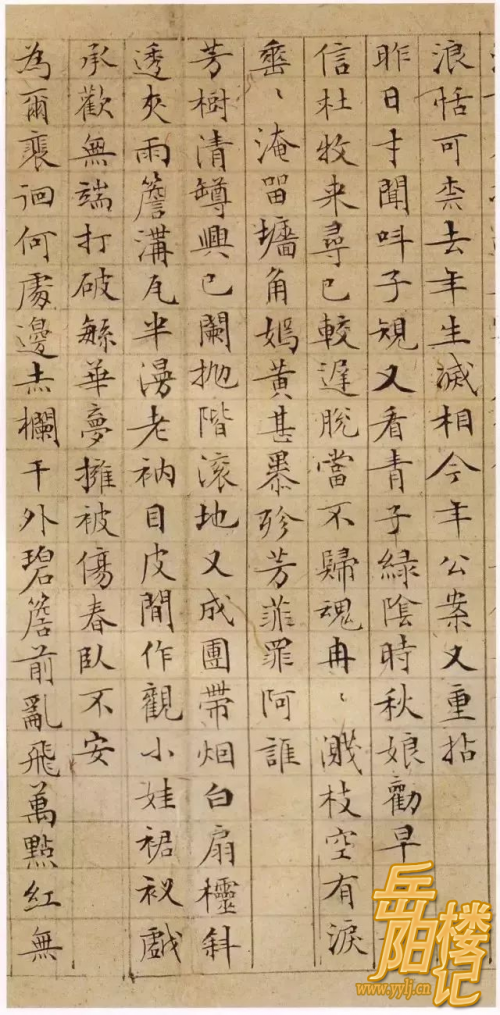 浪恬可柰去年生滅相今年公案又重拈
昨日才聞呌子規又看青子綠陰時秋娘勸早
信杜牧来尋已較遲脫當不歸魂冉、濺枝空有淚
埀、淹留墻角嫣黃甚暴殄芳菲罪阿誰
芳樹清罇興已闌抛階滚地又成團帶烟白扇櫺斜
透夾雨簷溝瓦半漫老衲目皮閒作觀小娃裙衩戲
承歡無端打破緐華夢擁被傷春臥不安
為爾裵迴何處邊赤欄干外碧簷前亂飛萬點紅無
岳阳楼记
www.yylj.cn